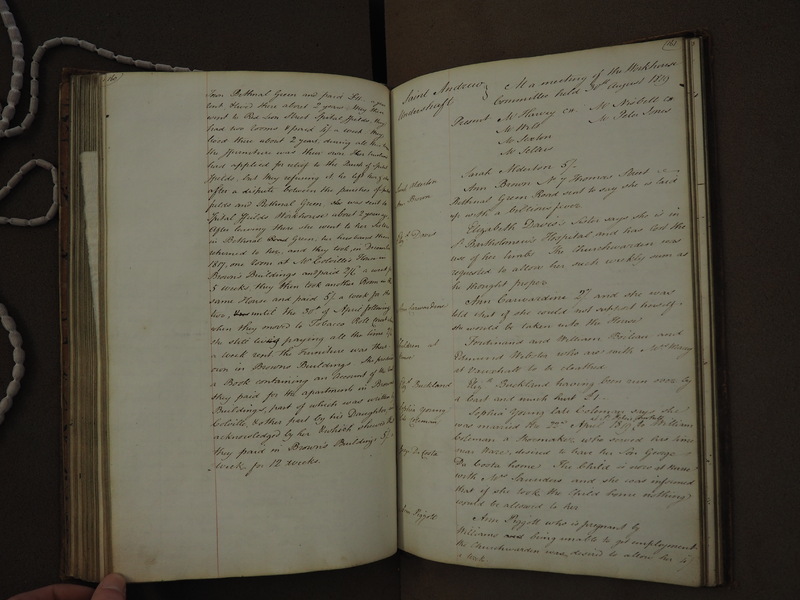 160
from Bethnal Green and paid
but lived there about 2 years. They then
went to Red Lion Street Spital ffields, they
had two rooms & paid 5/- a week They
lived there about 2 years, during all
the ffurniture was their own Her husband
had applied for relief to the Parish of
ffields, but they refusing it he left her &
after a dispute between the parishes of
ffields and Bethnal Green, she was sent to
Spital ffields Workhouse about 2 years
After leaving there she went to her Sister
in Bethnal Green, her husband then
returned to her, and they took in December
1818, one room at Mr Colville's House in
Brown's Buildings and paid 2/6 a week for
5 weeks, they then took another Room in the
same House and paid 5/ a week for the
two, until the 30th of April following
when they moved to Tobacco Roll Court
she still paying all the time
a week rent the Furniture was their
own in Brown's Buildings She produced
a Book containing an account of the
they paid for the apartments in Brown's
Buildings, part of which was written
Colville, & other part by his Daughter,
acknowledged by her & which shows that
they paid in Brown's Buildings 5/
week for 12 weeks.
161
Saint Andrew
Undershaft
At a meeting of the Workhouse
Committee held 30th August 1819
Present Mr Fleurry c.w. Mr Nesbitt c.w.
Mr Peter Jones
Mr Sexton
Mr Sellers
Sarah Manton 5/
Ann Brown
Ann Brown N. 7 Thomas Street
Bethnal Green Road sent to say she is laid
up with a billious fever
Elizth Davis
Elizabeth Davis's Sister says she is in
St Bartholomew's Hospital and has lost the
use of her limbs The Churchwarden was
requested to allow her such weekly sum as
he thought proper
Ann Carwardine
Ann Carwardine 2/ and she was
told that if she could not support herself
she would be taken into the House
Children at
Ferdinand and William Borlean and
Edmund Webster who are with Mrs
at Vauxhall to be cloathed.
Elizth Buckland
Elizth Buckland having been run over by
a Cart and much hurt £1.
Sophia Young
late Coleman
Sophia Young late Coleman says she
was married the 22nd April 1819 to William
Coleman a Shoemaker who served his time
at Ware, desired to have her Son George
Geo. Da Costa
Da Costa home. The Child is now at nurse
with Mrs Saunders and she was informed
that if she took the Child home nothing
would be allowed to her
Ann Piggott
Ann Piggott who is pregnant by
Williams being unable to get employment
the Churchwarden was desired to allow her
a week